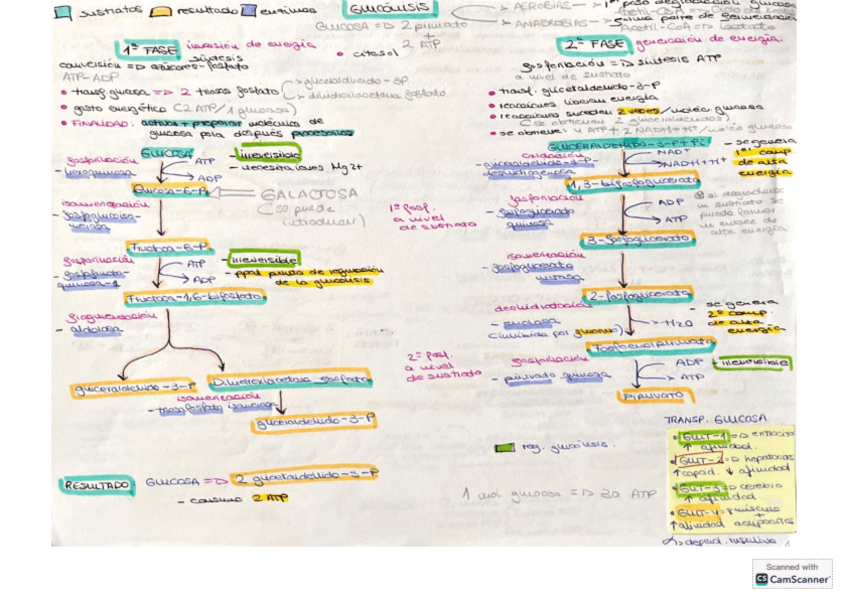 sustratos resultado enzimas
GLUCÓLISIS
AEROBIAS
ANAEROBIAS
GLUCOSA => 2 piruvato
2 ATP
1ª FASE inversión de energía
• citosol
conversión => azúcares-fosfato
ATP-ADP
• transf. glucosa => 2 triosas fosfato
gliceraldehído-3P
dihidroxiacetona fosfato
• gasto energético (2 ATP/1 glucosa)
• FINALIDAD: activar + preparar moléculas de
glucosa para después procesarlas
GLUCOSA
fosforilación
- hexoquinasa
ATP
ADP
- irreversible
- necesita iones Mg2+
Glucosa-6-P
GALACTOSA
(se puede
introducir)
isomerización
Fructosa-6-P
fosforilación
ATP
ADP
- irreversible
- ppal punto de regulación
de la glucólisis
Fructosa-1,6-bifosfato
- aldolasa
gliceraldehído-3-P
Dihidroxiacetona fosfato
isomerización
- triosafosfato isomerasa
gliceraldehído-3-P
RESULTADO
GLUCOSA => 2 gliceraldehído-3-P
- consumo 2 ATP
2ª FASE generación de energía
fosforilación => síntesis ATP
a nivel de sustrato
• transf. gliceraldehído-3-P
• reacciones liberan energía
• reacciones suceden 2 veces/molec glucosa
(se obtienen 2 gliceraldehídos)
• se obtiene: 4 ATP + 2 NADH+H+/molec glucosa
GLICERALDEHÍDO-3-P+Pi
oxidación
NAD+
NADH+H+
- se genera
1er comp
de alta
energía
1,3-bifosfoglicerato
1ª fosf.
a nivel
de sustrato
fosforilación
- fosfoglicerato
quinasa
ADP
ATP
3-fosfoglicerato
isomerización
- fosfoglicerato
mutasa
2-fosfoglicerato
deshidratación
- enolasa
(inhibida por fluoruro)
H2O
- se genera
2º comp.
de alta
energía
Fosfoenolpiruvato
2ª fosf.
a nivel
de sustrato
fosforilación
- piruvato quinasa
ADP
ATP
- irreversible
PIRUVATO
reg. glucólisis.
1 mol glucosa => 30 ATP
TRANSP. GLUCOSA
• GLUT-1 => eritrocito
↑ afinidad.
• GLUT-2 => hepatocito
↑ capacid. ↓ afinidad
• GLUT-3 => cerebro
↑ afinidad
• GLUT-4 => músculo
+
↑ afinidad adipocitos
depend. insulina
Scanned with
CS CamScanner